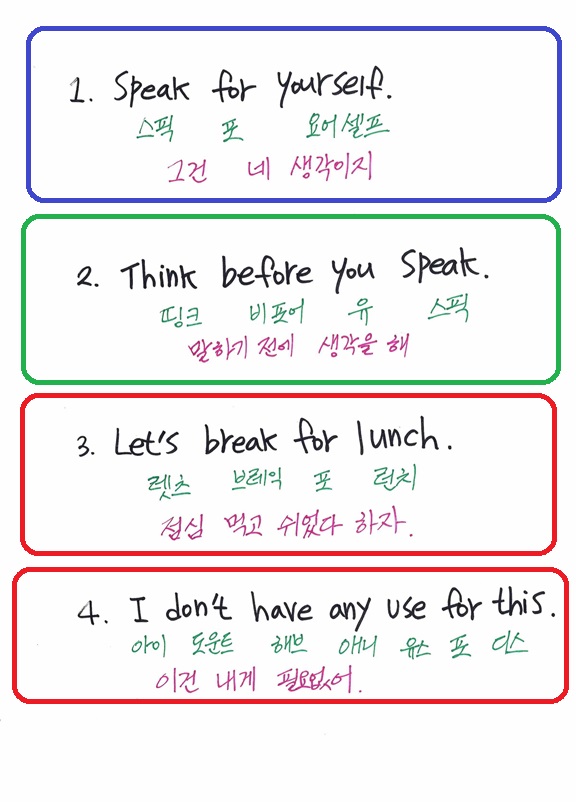 1. Speak for yourself.
스픽 포 요어셀프
그건 네 생각이지
2. Think before you speak.
띵크 비포어 유 스픽
말하기 전에 생각을 해
3. Let's break for lunch.
렛츠 브레익 포 런치
점심 먹고 쉬었다 하자.
4. I don't have any use for this.
아이 도운트 해브 애니 유스 포 디스
이건 내게 필요없어.